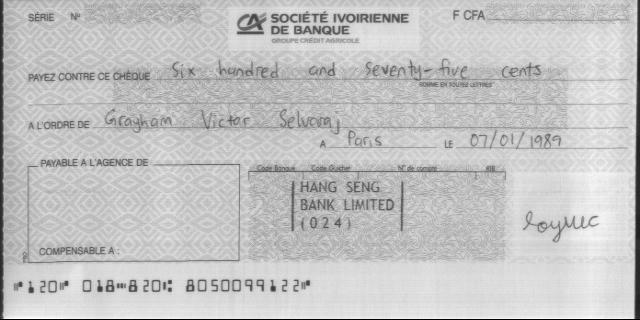 SÉRIE N° F CFA
CA SOCIÉTÉ IVOIRIENNE
DE BANQUE
GROUPE CRÉDIT AGRICOLE
PAYEZ CONTRE CE CHÈQUE Six hundred and seventy-five cents
SOMME EN TOUTES LETTRES
A L'ORDRE DE Grayham Victor Selvaraj
A Paris LE 07/01/1989
PAYABLE A L'AGENCE DE
Code Banque Code Guichet N° de compte RIB
HANG SENG
BANK LIMITED
(024)
COMPENSABLE A :
⑈120⑈ 018⑉820⑆ 8050099122⑈